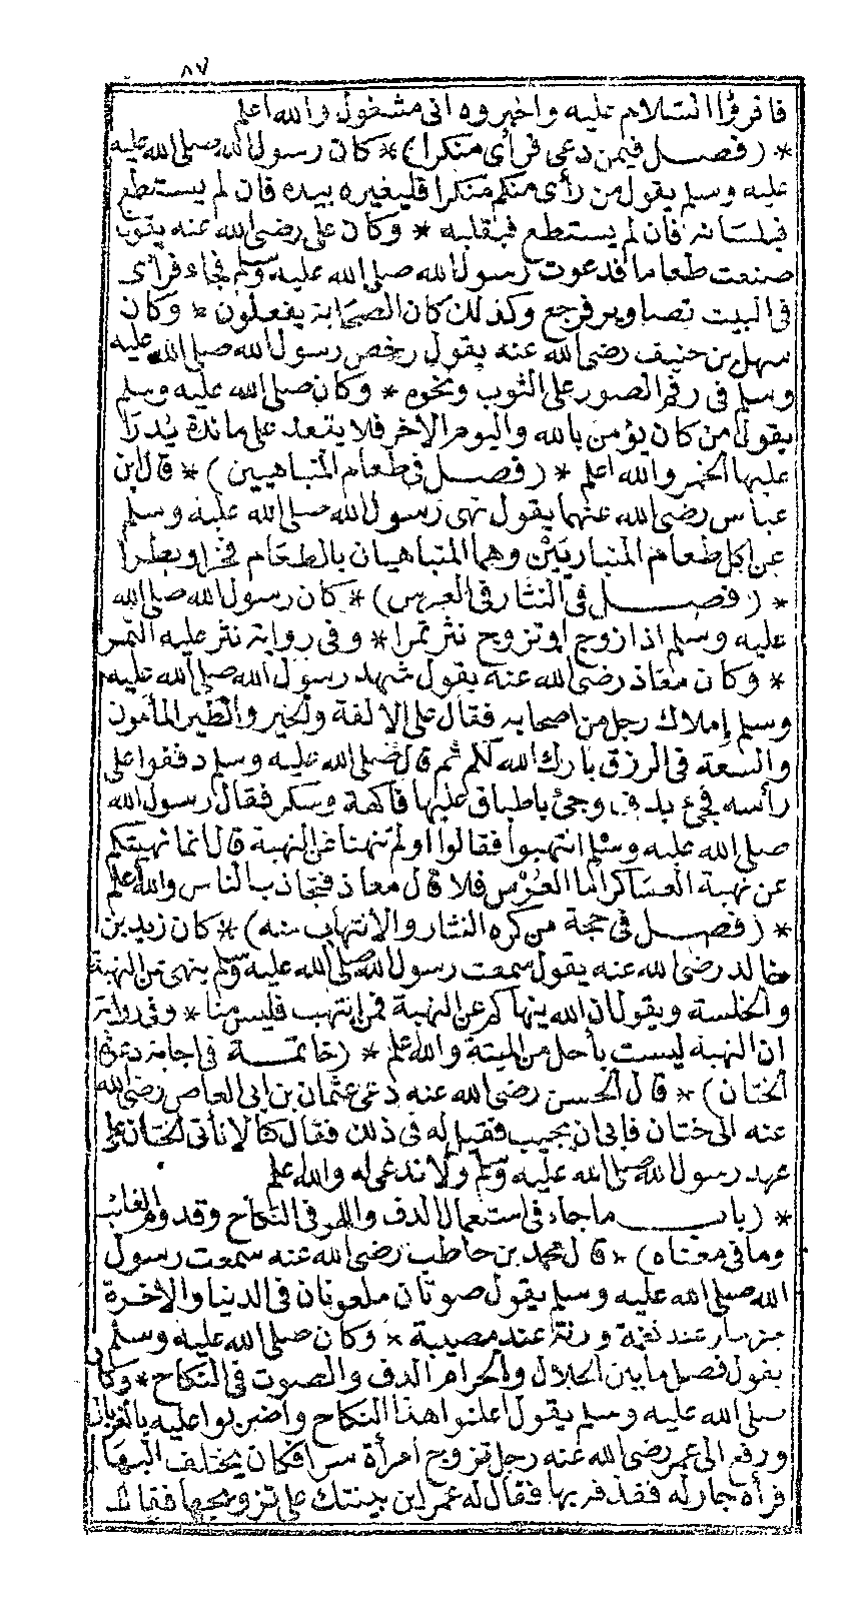 ٨٧
فاقرؤا السلام عليه واخبروه انى مشغول والله اعلم
* (فصل فيمن دعى فرأى منكرا) * كان رسول الله صلى الله عليه
عليه وسلم يقول من رأى منكم منكرا فليغيره بيده فان لم يستطع
فبلسانه فان لم يستطع فبقلبه * وكان على رضى الله عنه يقول
صنعت طعاما فدعوت رسول الله صلى الله عليه وسلم فجاء فرأى
فى البيت تصاوير فرجع وكذلك كان الصحابة يفعلون * وكان
سهل بن حنيف رضى الله عنه يقول رخص رسول الله صلى الله عليه
وسلم فى رقم الصور على الثوب ونحوه * وكان صلى الله عليه وسلم
يقول من كان يؤمن بالله واليوم الآخر فلا يقعد على مائدة يدرا
عليها الخمر والله اعلم * (فصل فى طعام المتباهيين) * قال ابن
عباس رضى الله عنهما يقول نهى رسول الله صلى الله عليه وسلم
عن اكل طعام المتباريين وهما المتباهيان بالطعام فخرا وبطرا
* (فصل فى النثار فى العرس) * كان رسول الله صلى الله
عليه وسلم اذا زوج او تزوج نثر تمرا * وفى رواية نثر عليه التمر
* وكان معاذ رضى الله عنه يقول شهد رسول الله صلى الله عليه
وسلم إملاك رجل من اصحابه فقال على الالفة والخير والطير المأمون
والسعة فى الرزق بارك الله لكم ثم قال صلى الله عليه وسلم دففوا على
رأسه فجئ بدف وجئ باطباق عليها فاكهة وسكر فقال رسول الله
صلى الله عليه وسلم انتهبوا فقالوا اولم تنهنا عن النهبة قال انما نهيتكم
عن نهبة العساكر اما العرس فلا قال معاذ فتجاذب الناس والله اعلم
* (فصل فى حجة من كره النثار والانتهاب منه) * كان زيد بن
خالد رضى الله عنه يقول سمعت رسول الله صلى الله عليه وسلم ينهى عن النهبة
والخلسة ويقول ان الله ينهاكم عن النهبة فمن انتهب فليس منا * وفى رواية
ان النهبة ليست بأحل من الميتة والله اعلم * (خاتمة فى اجابة دعوة
الختان) * قال الحسن رضى الله عنه دعى عثمان بن ابى العاص رضى الله
عنه الى ختان فابى ان يجيب فقيل له فى ذلك فقال كنا لا نأتى الختان على
عهد رسول الله صلى الله عليه وسلم ولا ندعى له والله اعلم
* (باب ما جاء فى استعمال الدف واللهو فى النكاح وقدوم الغائب
وما فى معناه) * قال محمد بن حاطب رضى الله عنه سمعت رسول
الله صلى الله عليه وسلم يقول صوتان ملعونان فى الدنيا والآخرة
مزمار عند نغمة ورنة عند مصيبة * وكان صلى الله عليه وسلم
يقول فصل ما بين الحلال والحرام الدف والصوت فى النكاح * وكان
صلى الله عليه وسلم يقول اعلنوا هذا النكاح واضربوا عليه بالغربال
ورفع الى عمر رضى الله عنه رجل تزوج امرأة سرا فكان يختلف اليها
فرآه جار له فقذفه بها فقال له عمر اين بينتك على تزويجها فقال